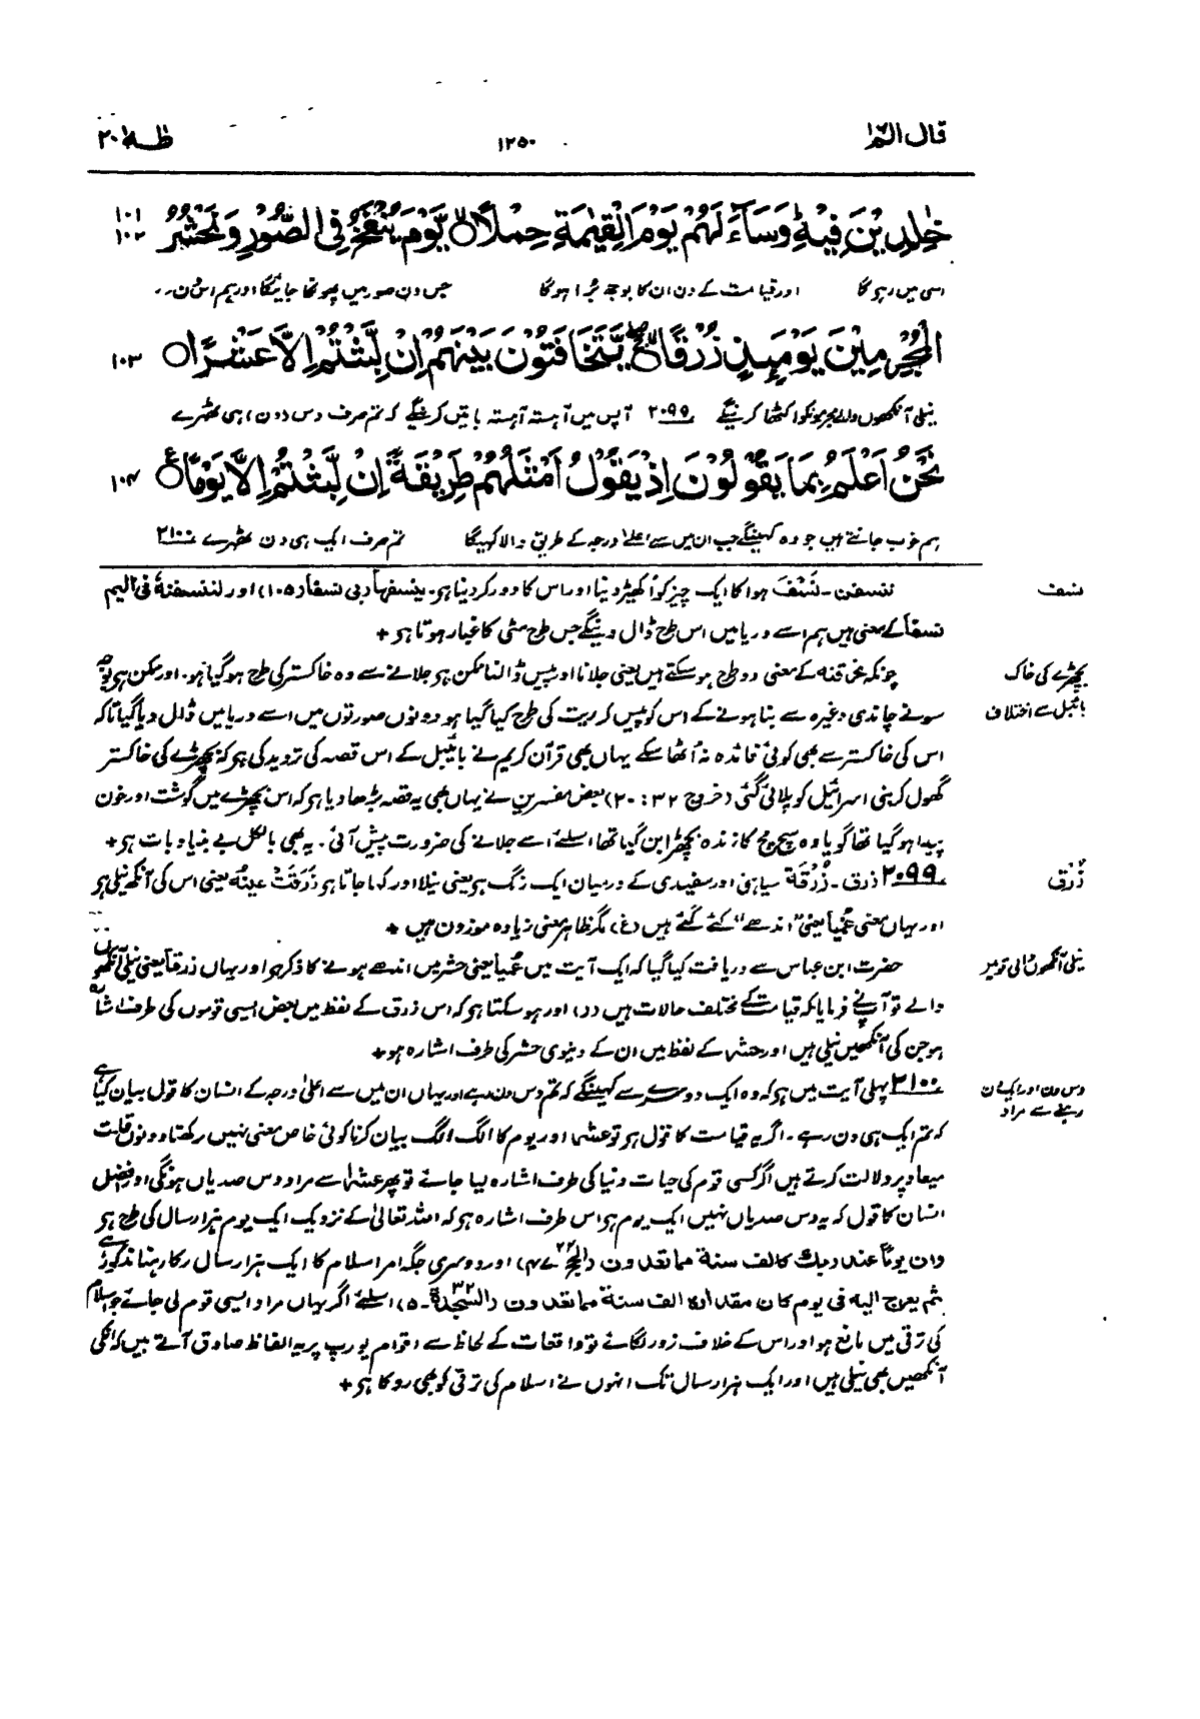 قال الم ۱۲۵۰ طٰهٰ ۲۰
خٰلِدِيْنَ فِيْهِ ؕ وَسَآءَ لَهُمْ يَوْمَ الْقِيٰمَةِ حِمْلًا ۙ يَّوْمَ يُنْفَخُ فِي الصُّوْرِ وَنَحْشُرُ ۱۰۱ ۱۰۲
اسی میں رہیگا اور قیامت کے دن ان کا بوجھ بُرا ہوگا جس دن صور میں پھونکا جائیگا اور ہم اس دن
الْمُجْرِمِيْنَ يَوْمَىِٕذٍ زُرْقًا ۖ يَّتَخَافَتُوْنَ بَيْنَهُمْ اِنْ لَّبِثْتُمْ اِلَّا عَشْرًا ۱۰۳
نیلی آنکھوں والے مجرمونکو اکٹھا کرینگے ۲۰۹۹ آپس میں آہستہ آہستہ باتیں کرینگے کہ تم صرف دس (دن) ہی ٹھہرے
نَحْنُ اَعْلَمُ بِمَا يَقُوْلُوْنَ اِذْ يَقُوْلُ اَمْثَلُهُمْ طَرِيْقَةً اِنْ لَّبِثْتُمْ اِلَّا يَوْمًا ۱۰۴
ہم خوب جانتے ہیں جو وہ کہینگے جب ان میں سے اعلےٰ درجہ کے طریق والا کہیگا تم صرف ایک ہی دن ٹھہرے ۲۱۰۰
نسف
ننسفن۔ نَسْف ہوا کا ایک چیز کو اُکھیڑ دینا اور اس کا دور کر دینا ہو۔ ینسفها ربی نسفا (۱۰۵) اور لننسفنه فی الیم
نسفا کے معنی ہیں ہم اسے دریا میں اس طرح ڈال دینگے جس طرح مٹی کا غبار ہوتا ہو +
بچھڑے کی خاک
بائبل سے اختلاف
چونکہ نحرقنه کے معنی دو طرح ہو سکتے ہیں یعنی جلانا اور پیس ڈالنا ممکن ہو جلانے سے وہ خاکستر کی طرح ہو گیا ہو۔ اور ممکن ہو
سونے چاندی وغیرہ سے بنا ہونے کے اس کو پیس کر ریت کی طرح کیا گیا ہو دونوں صورتوں میں اسے دریا میں ڈال دیا گیا تاکہ
اس کی خاکستر سے بھی کوئی فائدہ نہ اُٹھا سکے یہاں بھی قرآن کریم نے بائیبل کے اس قصہ کی تردید کی ہو کہ بچھڑے کی خاکستر
گھول کر بنی اسرائیل کو پلائی گئی (خروج ۳۲ : ۲۰) بعض مفسرین نے یہاں بھی یہ قصہ بڑھا دیا ہو کہ اس بچھڑے میں گوشت اور خون
پیدا ہو گیا تھا گویا وہ سچ مچ کا زندہ بچھڑا بن گیا تھا اسلئے اسے جلانے کی ضرورت پیش آئی۔ یہ بھی بالکل بے بنیاد بات ہو +
زُرْق
۲۰۹۹ زرق۔ زُرْقَة سیاہی اور سفیدی کے درمیان ایک رنگ ہو یعنی نیلا اور کہا جاتا ہو زَرَقَتْ عینُه یعنی اس کی آنکھ نیلی ہو
اور یہاں معنی عُمْیاً یعنی ”اندھے“ کئے گئے ہیں (غ) مگر ظاہر معنی زیادہ موزون ہیں +
نیلی آنکھوں والی قومیں
حضرت ابن عباس سے دریافت کیا گیا کہ ایک آیت میں عُمیاً یعنی حشر میں اندھے ہونے کا ذکر ہو اور یہاں زرقاً یعنی نیلی آنکھوں
والے تو آپنے فرمایا کہ قیامت کے مختلف حالات ہیں (ر) اور ہو سکتا ہو کہ اس زرق کے لفظ میں بعض ایسی قوموں کی طرف اشارہ
ہو جن کی آنکھیں نیلی ہیں اور حشر کے لفظ میں ان کے دنیوی حشر کی طرف اشارہ ہو +
دس دن اور ایک دن
رہنے سے مراد
۲۱۰۰ پہلی آیت میں ہو کہ وہ ایک دوسرے سے کہینگے کہ تم دس دن رہے اور یہاں ان میں سے اعلیٰ درجہ کے انسان کا قول بیان کیا ہے
کہ تم ایک ہی دن رہے۔ اگر یہ قیامت کا قول ہو تو عشر اور یوم کا الگ الگ بیان کرنا کوئی خاص معنی نہیں رکھتا دونوں قلت
میعاد پر دلالت کرتے ہیں اگر کسی قوم کی حیات دنیا کی طرف اشارہ لیا جائے تو پھر عشر سے مراد دس صدیاں ہونگی اور افضل
انسان کا قول کہ یہ دس صدیاں نہیں ایک یوم ہو اس طرف اشارہ ہو کہ اللہ تعالیٰ کے نزدیک ایک یوم ہزار سال کی طرح ہو
وان یوماً عند ربك کالف سنة مما تعدون (الحج ۲۲۔۴۷) اور دوسری جگہ امر اسلام کا ایک ہزار سال رکا رہنا مذکور ہے
ثم یعرج الیه فی یوم کان مقداره الف سنة مما تعدون (السجدة ۳۲۔۵) اسلئے اگر یہاں مراد ایسی قوم لی جائے جو اسلام
کی ترقی میں مانع ہو اور اس کے خلاف زور لگائے تو واقعات کے لحاظ سے اقوام یورپ پر یہ الفاظ صادق آتے ہیں کہ انکی
آنکھیں بھی نیلی ہیں اور ایک ہزار سال تک انہوں نے اسلام کی ترقی کو بھی روکا ہو +